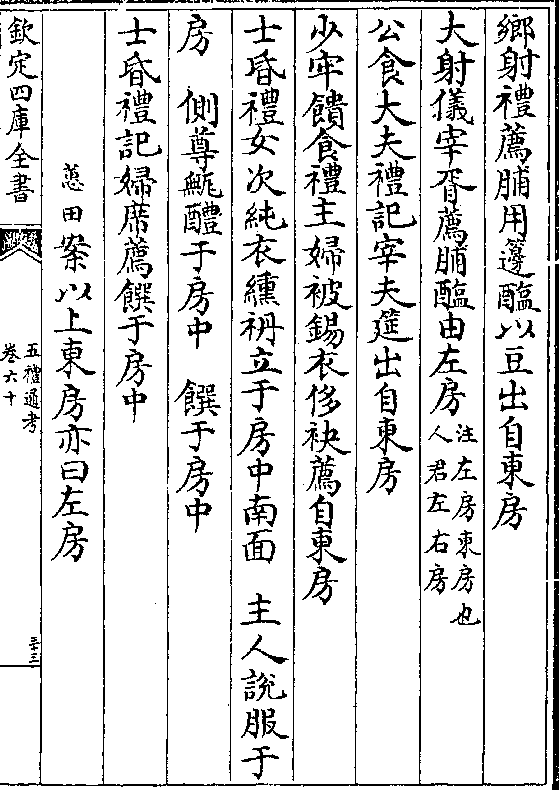 鄉射禮薦脯用籩醢以豆出自東房
大射儀宰胥薦脯醢由左房 注左房東房也人君左右房
公食大夫禮記宰夫筵出自東房
少牢饋食禮主婦被錫衣侈袂薦自東房
士昏禮女次純衣纁袡立于房中南面 主人說服于
房 側尊甒醴于房中 饌于房中
士昏禮記婦席薦饌于房中
蕙田案以上東房亦曰左房
欽定四庫全書
五禮通考
卷六十
三十三